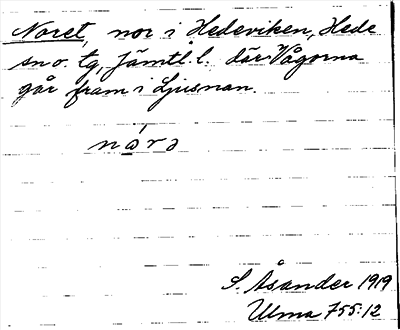 Noret, nor i Hedeviken, Hede
sn o. tg, Jämtl. l. där Vågorna
går fram i Ljusnan.
nárə
S. Åsander 1919
Ulma 755:12